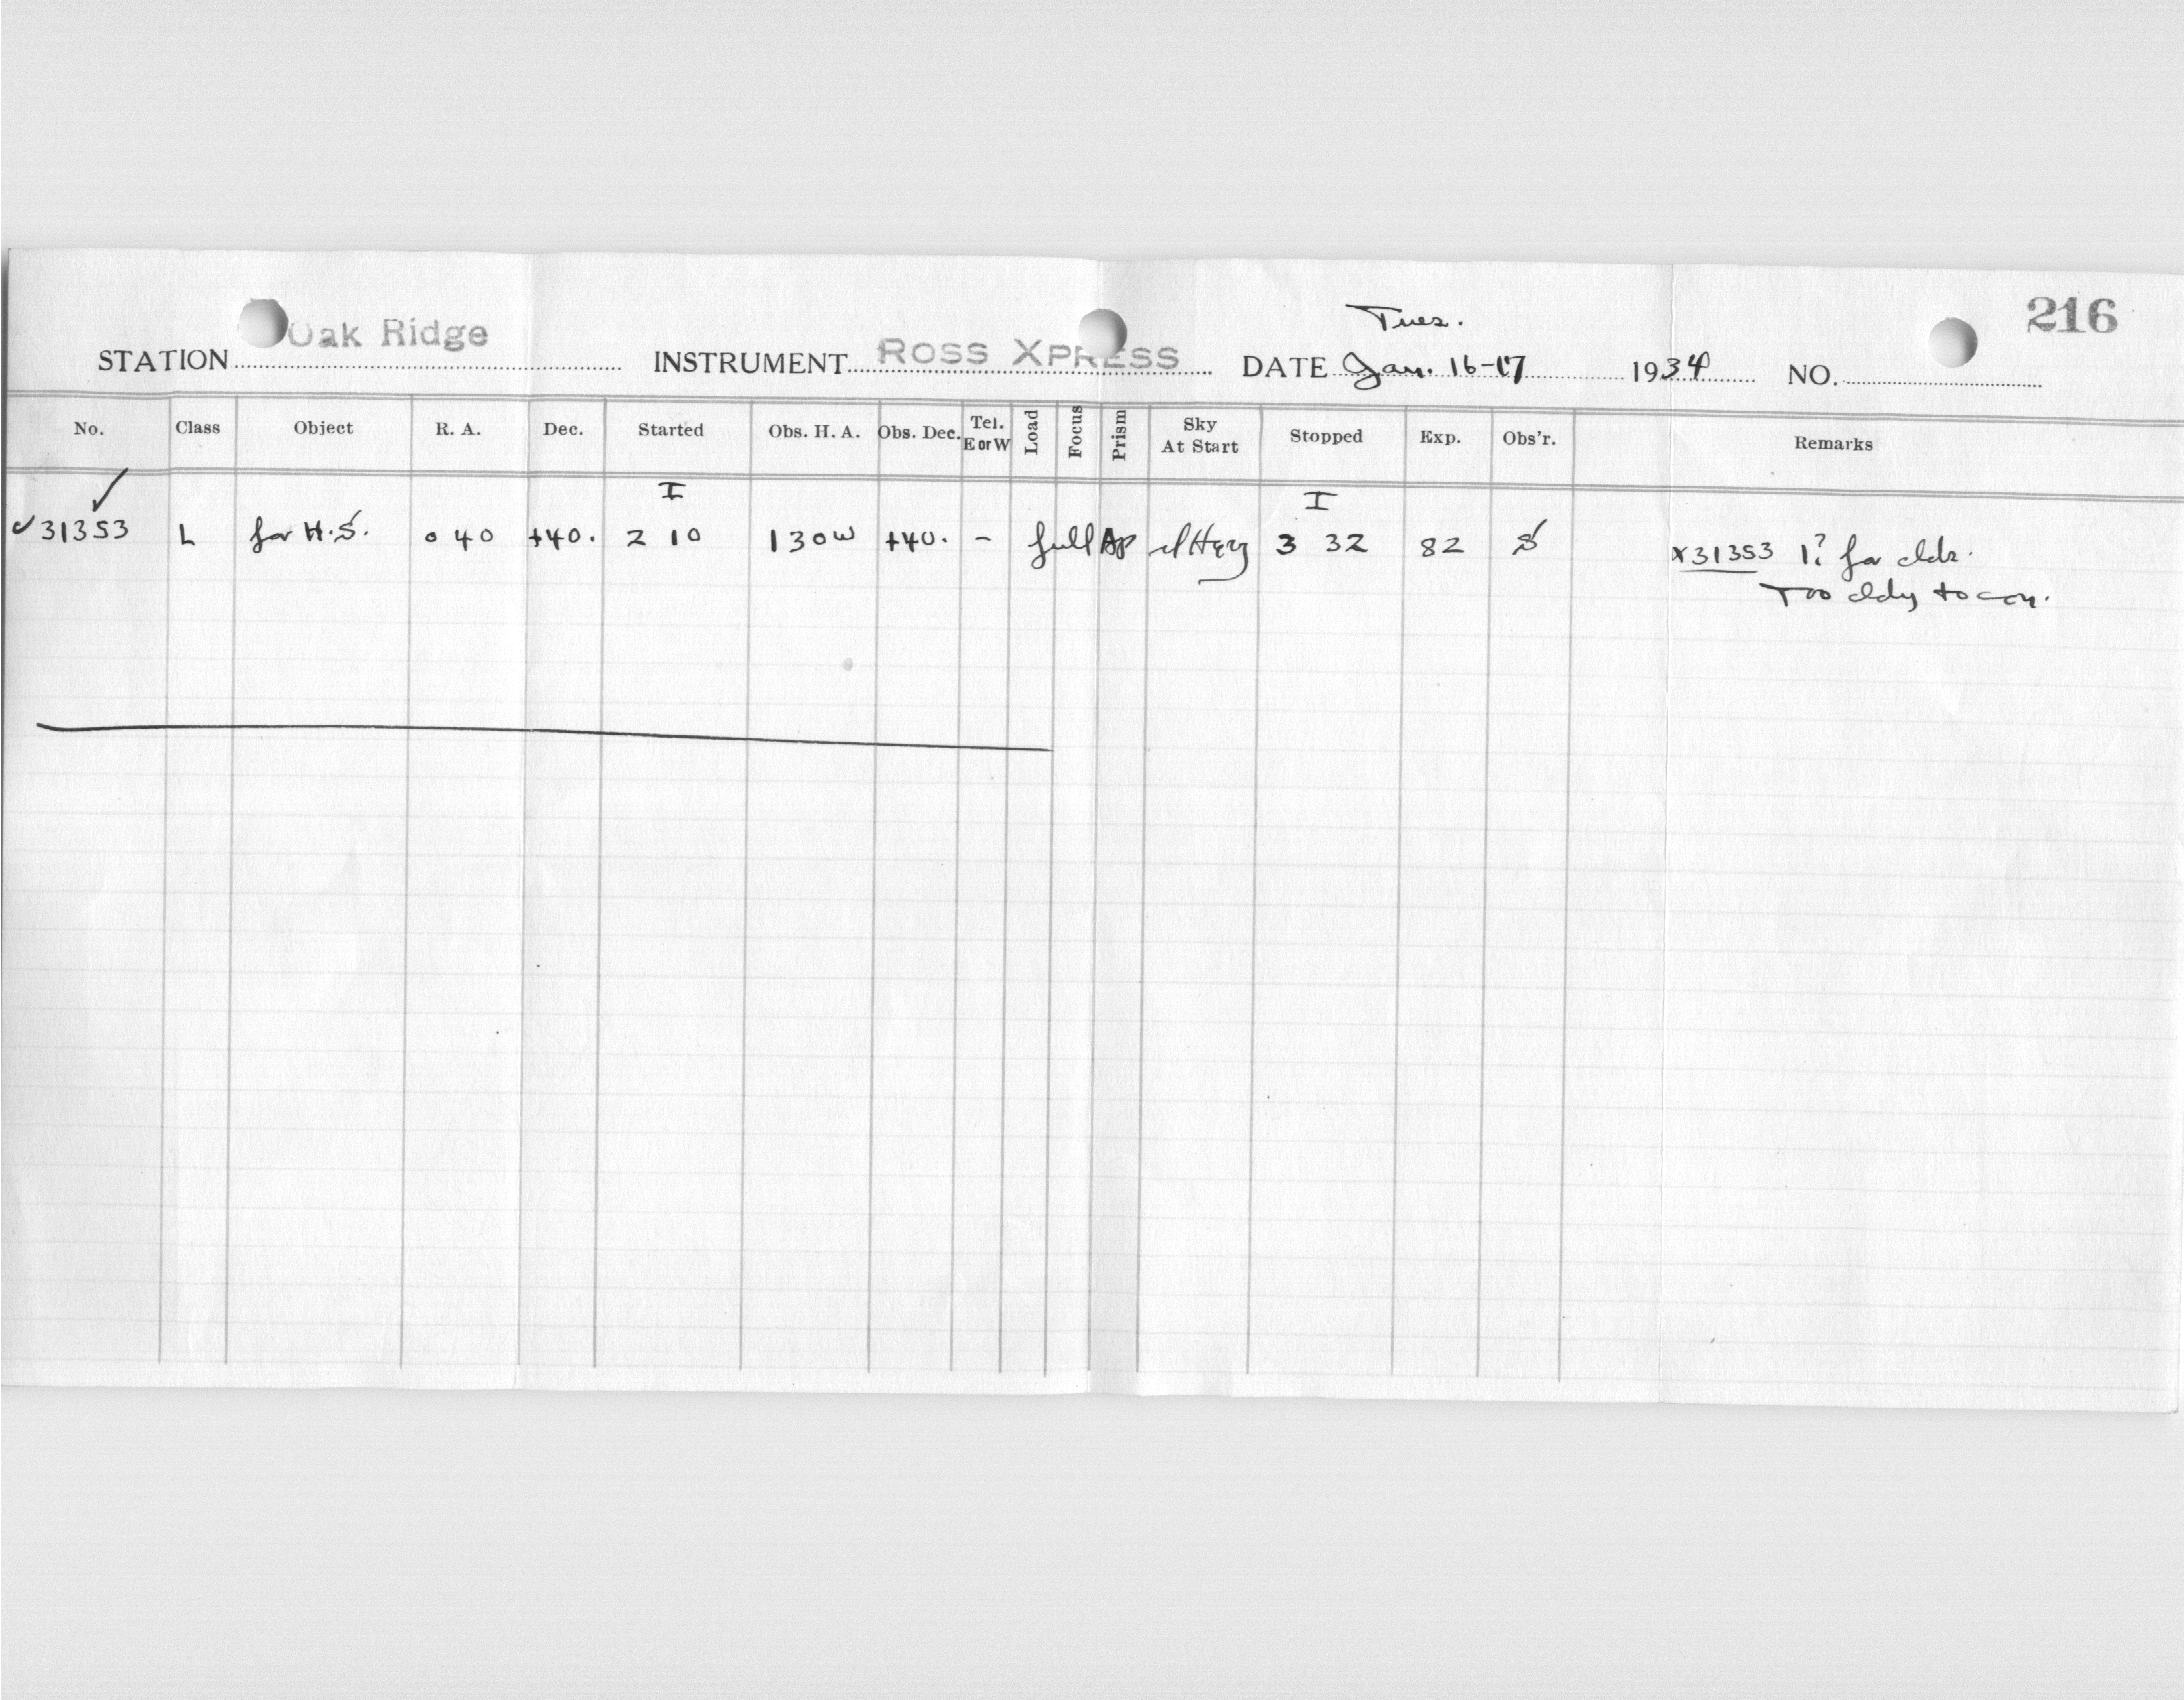 216
Tues.
STATION Oak Ridge INSTRUMENT ROSS XPRESS DATE Jan. 16-17 1934 NO.
No. Class Object R. A. Dec. Started Obs. H. A. Obs. Dec. Tel. E or W Load Focus Prism Sky At Start Stopped Exp. Obs'r. Remarks
I I
✓31353 L for H.S. 0 40 +40. 2 10 1 30 W +40. - full Ap 3 32 82 S x31353 1? for clds.
Too cldy to con.